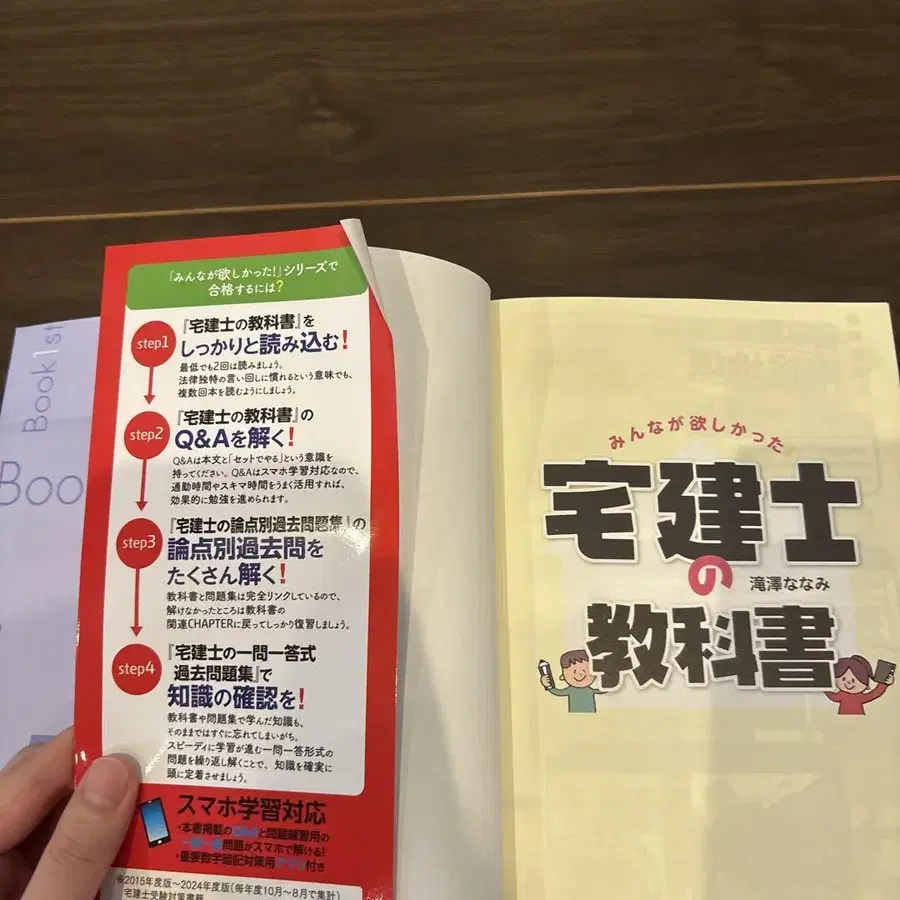 Book1st
Boo
「みんなが欲しかった!」シリーズで
合格するには?
step1
『宅建士の教科書』を
しっかりと読み込む!
最低でも2回は読みましょう。
法律独特の言い回しに慣れるという意味でも、
複数回本を読むようにしましょう。
step2
『宅建士の教科書』の
Q&Aを解く!
Q&Aは本文と「セットでやる」という意識を
持ってください。Q&Aはスマホ学習対応なので、
通勤時間やスキマ時間をうまく活用すれば、
効果的に勉強を進められます。
step3
『宅建士の論点別過去問題集』の
論点別過去問を
たくさん解く!
教科書と問題集は完全リンクしているので、
解けなかったところは教科書の
関連CHAPTERに戻ってしっかり復習しましょう。
step4
『宅建士の一問一答式
過去問題集』で
知識の確認を!
教科書や問題集で学んだ知識も、
そのままではすぐに忘れてしまいがち。
スピーディに学習が進む一問一答形式の
問題を繰り返し解くことで、知識を確実に
頭に定着させましょう。
スマホ学習対応
・本書掲載のQ&Aと問題練習用の
一問一答問題がスマホで解ける!
・重要数字暗記対策用アプリ付き
※2015年度版~2024年度版(毎年度10月~8月で集計)
宅建士受験対策書籍
みんなが欲しかった
宅建士
の
滝澤ななみ
教科書